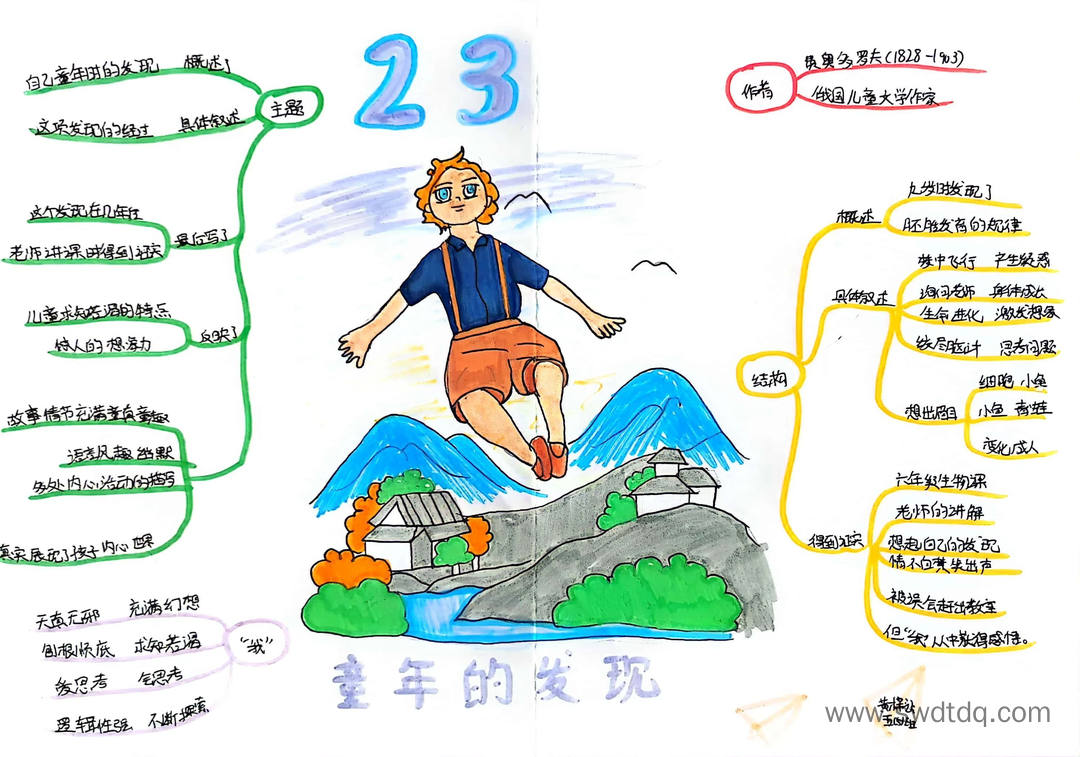 23
童年的发现
主题
自己童年时的发现 概述了
这项发现的经过 具体叙述
最后写了
这个发现在几年后
老师讲课时得到证实
反映了
儿童求知若渴的特点
惊人的想象力
故事情节充满童真童趣
语言风趣幽默
多处内心活动的描写
真实展现了孩子内心世界
"我"
天真无邪 充满幻想
刨根究底 求知若渴
爱思考 会思考
逻辑性强 不断探索
作者
费奥多罗夫(1828-1903)
俄国儿童大学作家
结构
概述
九岁时发现了
胚胎发育的规律
具体叙述
梦中飞行 产生疑惑
询问老师 身体成长
生命进化 激发想象
绞尽脑汁 思考问题
想出眉目
细胞 小鱼
小鱼 青蛙
变化成人
得到证实
六年级生物课
老师的讲解
想起自己的发现
情不自禁笑出声
被误会赶出教室
但"我"从中获得感悟。
www.swdtdq.com